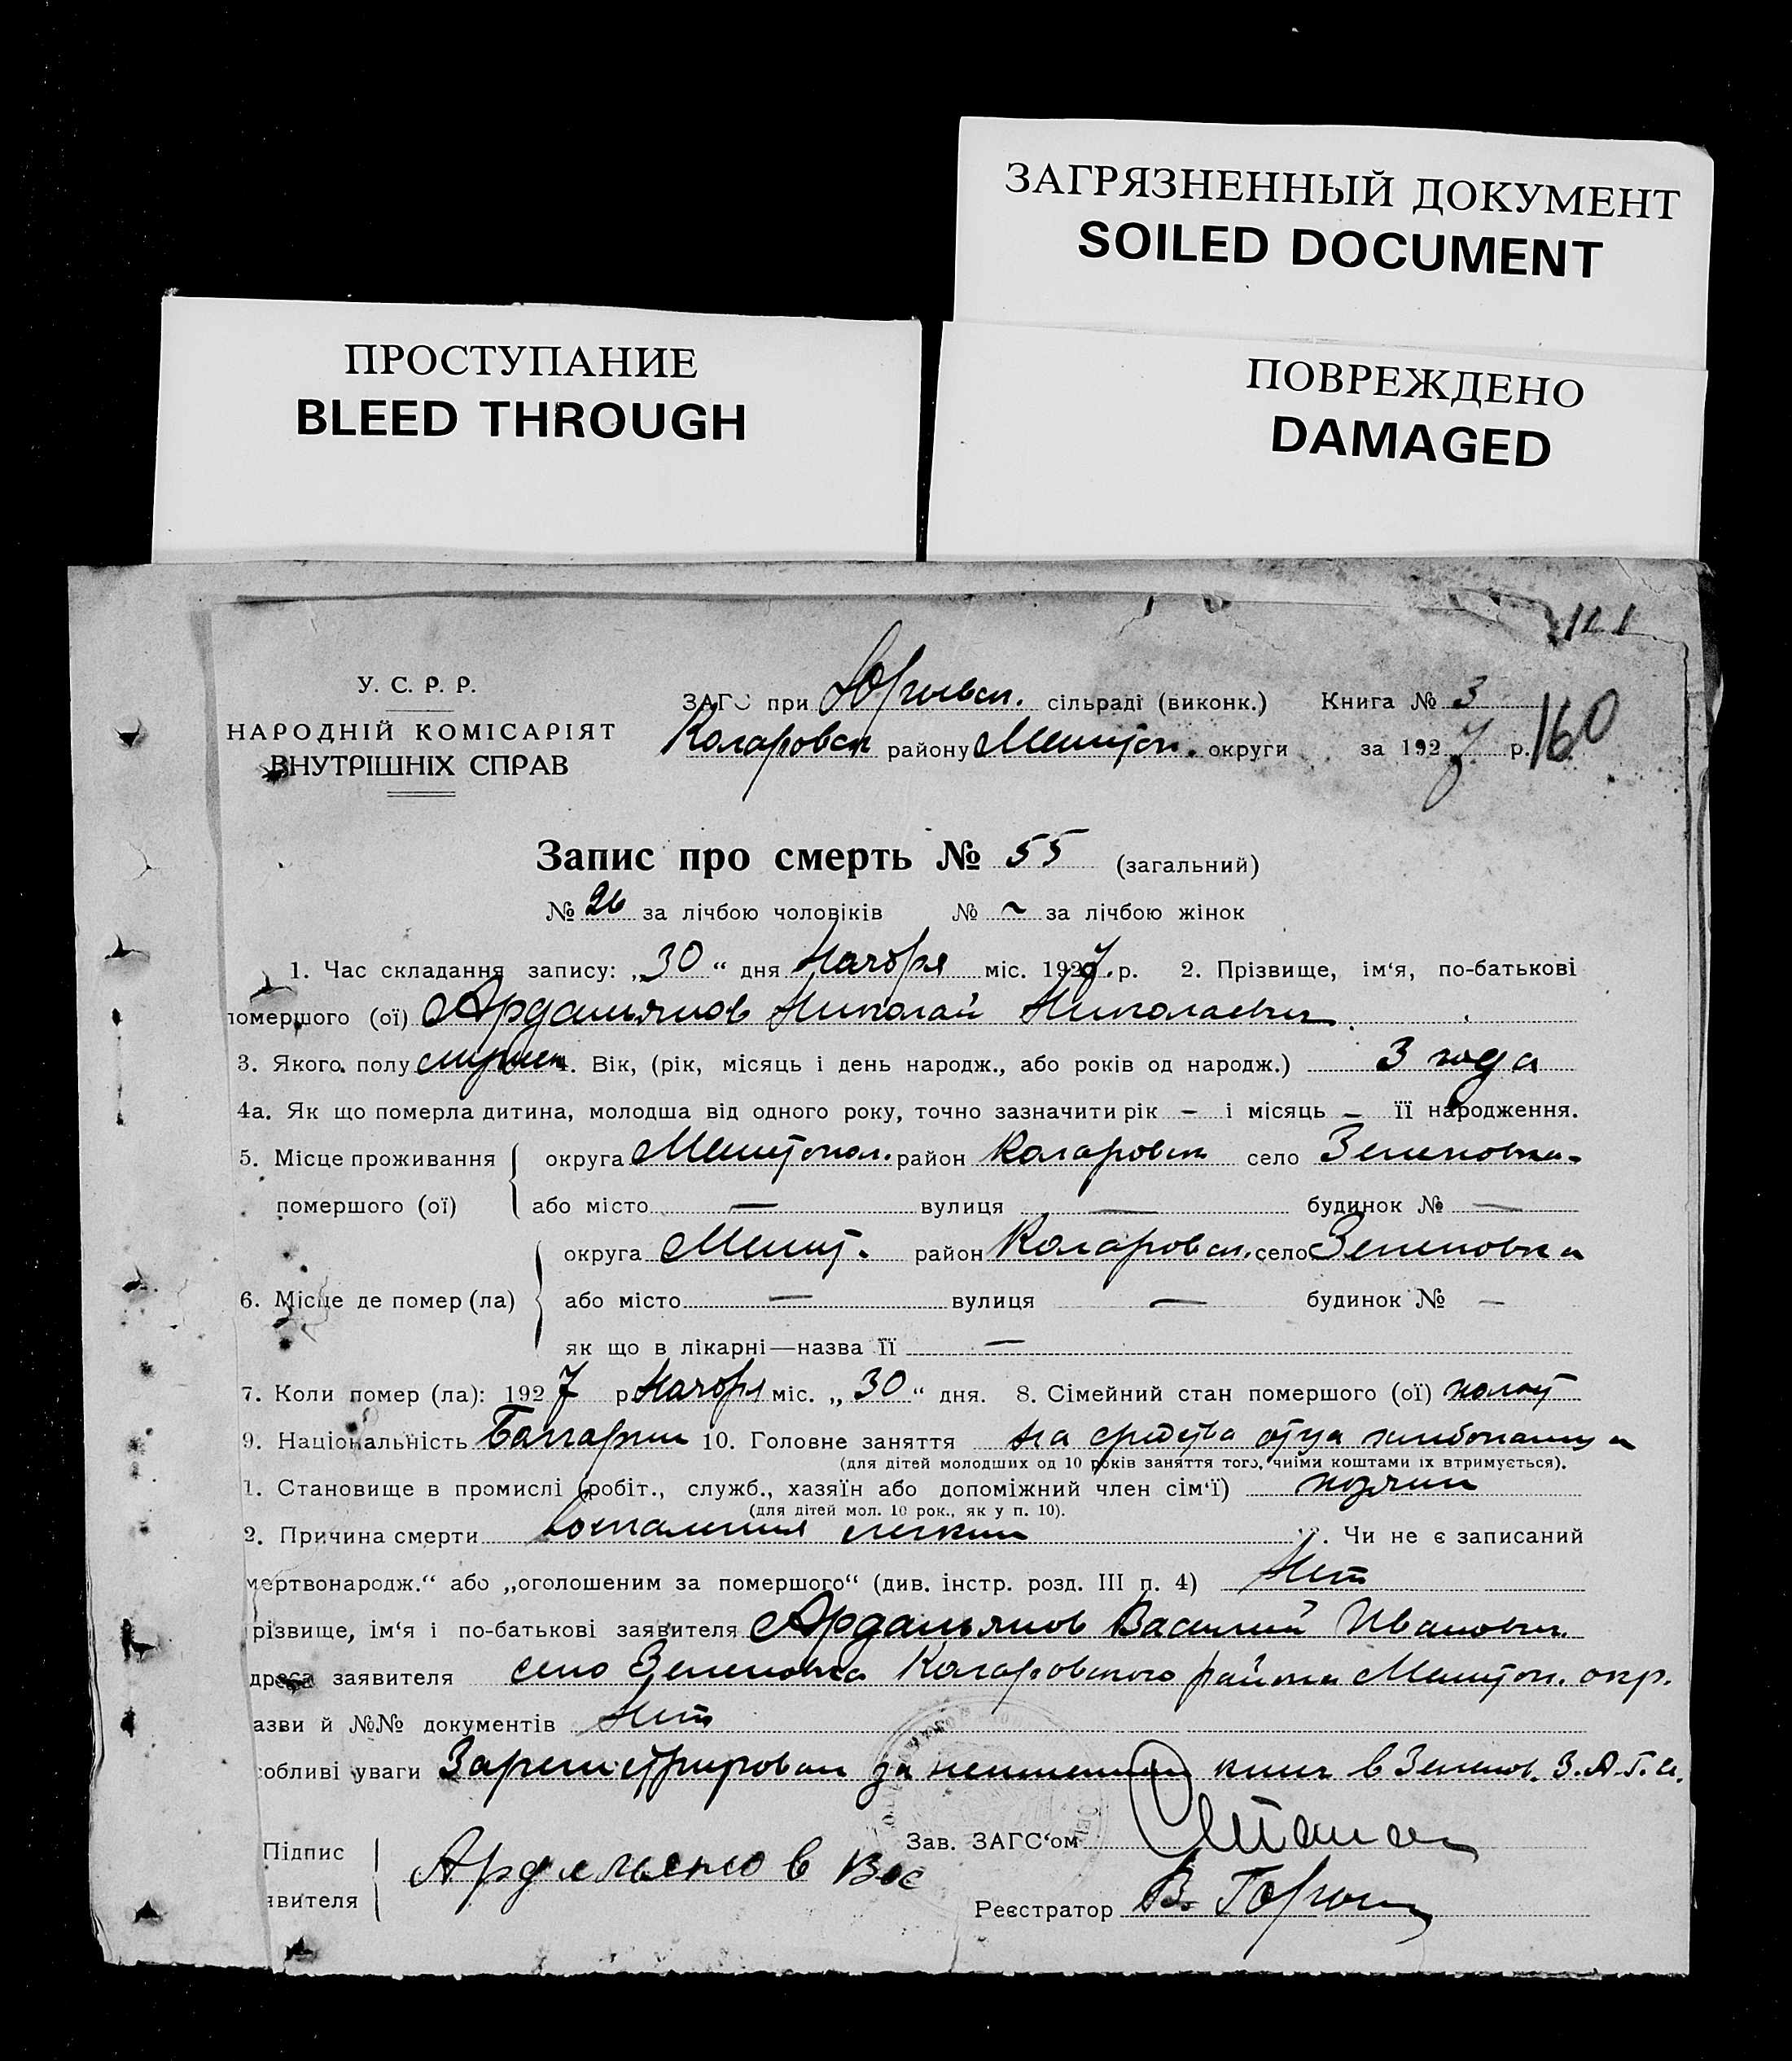 ЗАГРЯЗНЕННЫЙ ДОКУМЕНТ
SOILED DOCUMENT
ПРОСТУПАНИЕ
BLEED THROUGH
ПОВРЕЖДЕНО
DAMAGED
У. С. Р. Р.
НАРОДНІЙ КОМІСАРІЯТ
ВНУТРІШНІХ СПРАВ
ЗАГС при Юрьевск. сільраді (виконк.) Книга № 3
Коларовск району Мелитоп. округи за 1927 р. 160
Запис про смерть № 55 (загальний)
№ 26 за лічбою чоловіків № ~ за лічбою жінок
1. Час складання запису: „30“ дня Ноября міс. 1927 р. 2. Прізвище, ім‘я, по-батькові
помершого (ої) Ардальянов Николай Николаевич
3. Якого полу мужск 4. Вік, (рік, місяць і день народж., або років од народж.) 3 года
4а. Як що померла дитина, молодша від одного року, точно зазначити рік – і місяць – її народження.
5. Місце проживання округа Мелитопол. район Коларовск село Зеленовка
помершого (ої) або місто — вулиця — будинок № —
округа Мелит. район Коларовск. село Зеленовка
6. Місце де помер (ла) або місто — вулиця — будинок № —
як що в лікарні—назва її —
7. Коли помер (ла): 1927 р Ноября міс. „30“ дня. 8. Сімейний стан помершого (ої) холост
9. Національність Болгарин 10. Головне заняття на средства отца хлебопашца
(для дітей молодших од 10 років заняття того, чиїми коштами їх втримується).
1. Становище в промислі (робіт., служб., хазяїн або допоміжний член сім‘ї) хозяин
(для дітей мол. 10 рок., як у п. 10).
2. Причина смерти воспаления легких . Чи не є записаний
мертвонародж.“ або „оголошеним за помершого“ (див. інстр. розд. III п. 4) Нет
різвище, ім‘я і по-батькові заявителя Ардальянов Василий Иванович
дреса заявителя село Зеленовка Коларовского района Мелитоп. окр.
азви й №№ документів Нет
собливі уваги Зарегистрирован за неимением книг в Зеленов. З.А.Г.С.
Підпис
явителя
Ардельянов Вас
Зав. ЗАГС‘ом
Реєстратор В.